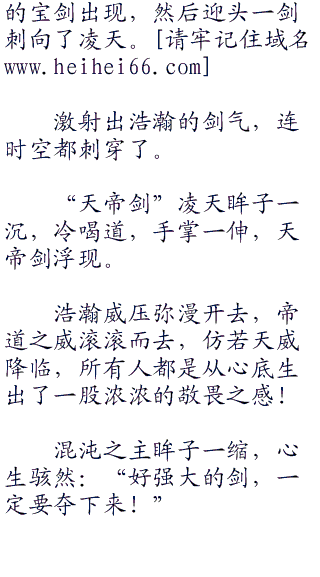 的宝剑出现，然后迎头一剑
刺向了凌天。[请牢记住域名
www.heihei66.com]
激射出浩瀚的剑气，连
时空都刺穿了。
“天帝剑”凌天眸子一
沉，冷喝道，手掌一伸，天
帝剑浮现。
浩瀚威压弥漫开去，帝
道之威滚滚而去，仿若天威
降临，所有人都是从心底生
出了一股浓浓的敬畏之感！
混沌之主眸子一缩，心
生骇然：“好强大的剑，一
定要夺下来！”